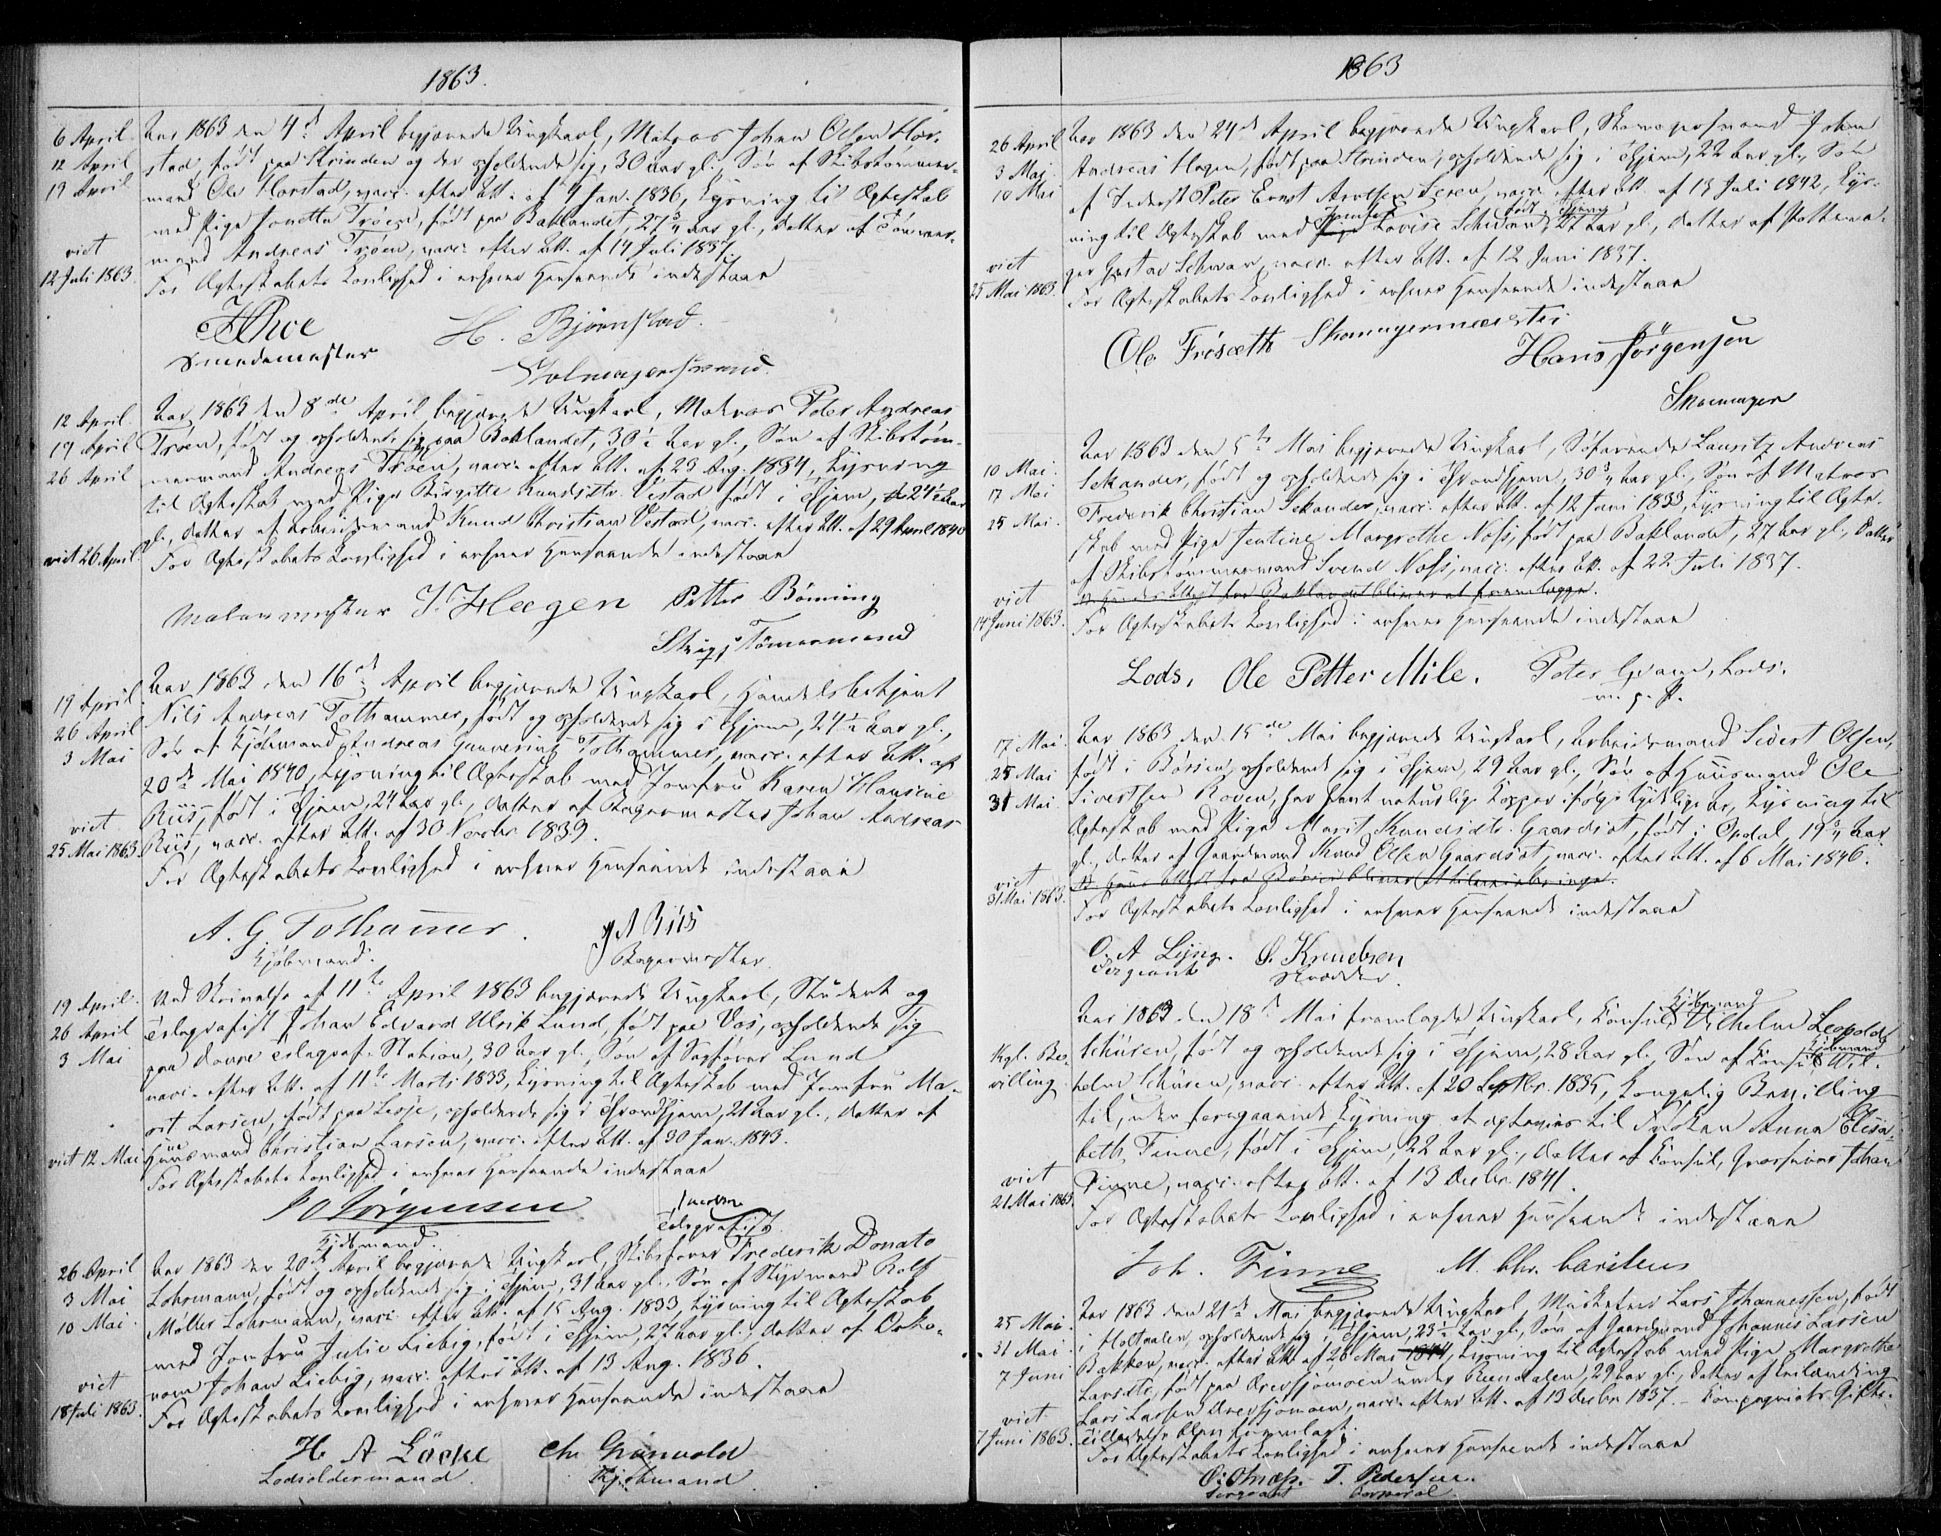 1863.
6 April
12 April
19 April
viet
12 Juli 1863.
Aar 1863 den 4de April begjærede Ungkarl, Matros Johan Olsen Hor-
stad, født paa Strinden og der opholdende sig, 30 Aar gl., Søn af Skibstømmer-
mand Ole Horstad, vacc. efter Att. af 4 Jan. 1836, Lysning til Ægteskab
med Pige Jonetta Trøen, født paa Baklandet, 27 3/4 Aar gl., Datter af Tømmer-
mand Andreas Trøen, vacc. efter Att. af 14 Juli 1837.
For Ægteskabets Lovlighed i enhver Henseende indestaae
Smedemester
H. Bjørnstad.
12 April.
19 April
26 April
viet 26 April.
Aar 1863 den 8de April begjærede Ungkarl, Matros Peter Andreas
Trøen, født og opholdende sig paa Baklandet, 30 1/2 Aar gl., Søn af Skibstøm-
mermand Andreas Trøen, vacc. efter Att. af 23 Aug. 1834, Lysning
til Ægteskab med Pige Birgitte Knudsdtr. Vestad født i Thjem, 24 1/2 Aar
gl., Datter af Arbeidsmand Knud Christian Vestad, vacc. efter Att. af 29 April 1840
For Ægteskabets Lovlighed i enhver Henseende indestaae
Malermester J. Heegen Petter Bönning
Skibstömermand
19 April.
26 April
3 Mai
viet
25 Mai 1863.
Aar 1863 den 16de April begjærede Ungkarl, Handelsbetjent
Nils Andreas Folhammer, født og opholdende sig i Thjem, 24 1/2 Aar gl.,
Søn af Kjøbmand Andreas Gunnerius Folhammer, vacc. efter Att. af
20de Mai 1840, Lysning til Ægteskab med Jomfru Karen Hansine
Riis, født i Thjem, 24 Aar gl., Datter af Bagermester Johan Andreas
Riis, vacc. efter Att. af 30 Novbr. 1839.
For Ægteskabets Lovlighed i enhver Henseende indestaae
A. G. Folhammer.
Kjöbmand.
J A Riis
Bagermester.
19 April.
26 April
3 Mai
viet 12 Mai
Ved Skrivelse af 11te April 1863 begjærede Ungkarl, Student og
Telegrafist Johan Edvard Ulrik Lund, født paa Vos, opholdende sig
paa Dovre Telegraf-Station, 30 Aar gl., Søn af Sagfører Lund
vacc. efter Att. af 11te Marts 1833, Lysning til Ægteskab med Jomfru Ma-
rit Larsen, født paa Lesje, opholdende sig i Throndhjem, 21 Aar gl., Datter af
Huusmand Christian Larsen, vacc. efter Att. af 30 Jan. 1843.
For Ægteskabets Lovlighed i enhver Henseende indestaae
Jörgensen
Kjöbmand.
Telegrafist
26 April
3 Mai
10 Mai.
viet
18 Juli 1863.
Aar 1863 den 20de April begjærede Ungkarl, Skibsfører Frederik Donato
Lohrmann, født og opholdende sig i Thjem, 31 Aar gl., Søn af Styrmand Rolf
Møller Lohrmann, vacc. efter Att. af 15 Aug. 1833, Lysning til Ægteskab
med Jomfru Julie Liebig, født i Thjem, 27 Aar gl., Datter af Oeko-
nom Johan Liebig, vacc. efter Att. af 13 Aug. 1836.
For Ægteskabets Lovlighed i enhver Henseende indestaae
H A Löcke Chr Grünvold
Lodsoldermand. Kjøbmand.
1863
26 April
3 Mai.
10 Mai
viet
25 Mai 1863.
Aar 1863 den 24de April begjærede Ungkarl, Skomagersvend Johan
Andreas Hagen, født paa Strinden, opholdende sig i Thjem, 22 Aar gl., Søn
af Inderst Peter Ernst Arntsen, vacc. efter Att. af 13 Juli 1842, Lys-
ning til Ægteskab med Jomfru Lovise Schwan, født i Thjem, 27 Aar gl., Datter af Pottema-
ger Gustav Schwan, vacc. efter Att. af 12 Juni 1837.
For Ægteskabets Lovlighed i enhver Henseende indestaae
Ole Fröseth Skomagermester
Hans Jörgensen
Skomager
10 Mai.
17 Mai
25 Mai.
viet
14 Juni 1863.
Aar 1863 den 5te Mai begjærede Ungkarl, Søfarende Lauritz Andreas
Sekander, født og opholdende sig i Throndhjem, 30 3/4 Aar gl., Søn af Matros
Frederik Christian Sekander, vacc. efter Att. af 12 Juni 1833, Lysning til Ægte-
skab med Pige Jentine Margrethe Noss, født paa Baklandet, 27 Aar gl., Datter
af Skibstømmermand Svend Noss, vacc. efter Att. af 22 Juli 1837.
For Ægteskabets Lovlighed i enhver Henseende indestaae
Lods, Ole Petter Mile. Peter Gram, Lods.
m. p. P.
17 Mai.
25 Mai
31 Mai.
viet
31 Mai 1863.
Aar 1863 den 15de Mai begjærede Ungkarl, Arbeidsmand Sivert Olsen,
født i Börsen, opholdende sig i Thjem, 29 Aar gl., Søn af Huusmand Ole
Sivertsen Roven, har havt naturlige Kopper ifølge synlige Ar, Lysning til
Ægteskab med Pige Marit Knudsdtr. Gaardsöt, født i Opdal, 19 3/4 Aar
gl., Datter af Gaardmand Knud Olsen Gaardsöt, vacc. efter Att. af 6 Mai 1846.
For Ægteskabets Lovlighed i enhver Henseende indestaae
O. A Lyng. O. Knudsen
Sergeant Skrædder.
Kgl. Be-
villing
viet
21 Mai 1863.
Aar 1863 den 18de Mai fremlagde Ungkarl, Kjøbmand Vilhelm Leopold
Schüsen, født og opholdende sig i Thjem, 28 Aar gl., Søn af Kjøbmand Wil-
helm Schüsen, vacc. efter Att. af 20 Septbr. 1835, Kongelig Bevilling
til, uden foregaaende Lysning at ægtevies til Frøken Anna Elisa-
beth Finne, født i Thjem, 22 Aar gl., Datter af Consul, Grosserer Johan
Finne, vacc. efter Att. af 13 Decbr. 1841.
For Ægteskabets Lovlighed i enhver Henseende indestaae
Joh. Finne M. Chr. Carstens
25 Mai.
31 Mai.
7 Juni
viet
7 Juni 1863.
Aar 1863 den 21de Mai begjærede Ungkarl, Musketeer Lars Johannessen, født
i Holtaalen, opholdende sig i Thjem, 23 1/2 Aar gl., Søn af Gaardmand Johannes Larsen
Bakken, vacc. efter Att. af 26 Mai 1844, Lysning til Ægteskab med Pige Margrethe
Larsdtr., født paa Drevsjømoen under Rendalen, 29 Aar gl., Datter af Indlænding
Lars Larsen Drevsjømoen, vacc. efter Att. af 13 Decbr. 1837. – Compagniets Gifte-
tilladelse blev fremlagt.
For Ægteskabets Lovlighed i enhver Henseende indestaae
T. Pedersen.
Sergeant Corporal.